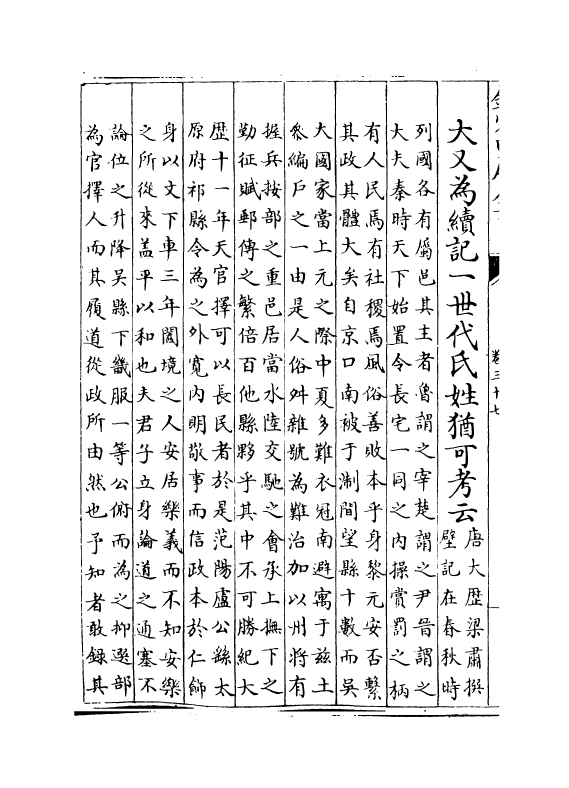 大又為續記一世代氏姓猶可考云
唐大歴梁肅撰
壁記在春秋時
列國各有屬邑其主者魯謂之宰楚謂之尹晉謂之
大夫秦時天下始置令長宅一同之内操賞罰之柄
有人民焉有社稷焉風俗善敗本乎身黎元安否繫
其政其體大矣自京口南被于淛間望縣十數而吳
大國家當上元之際中夏多難衣冠南避寓于兹土
叅編户之一由是人俗舛雜號為難治加以州將有
握兵按部之重邑居當水陸交馳之會承上撫下之
勤征賦郵傳之繁倍百他縣夥乎其中不可勝紀大
歴十一年天官擇可以長民者於是范陽盧公繇太
原府祁縣令為之外寛内明敬事而信政本於仁飾
身以文下車三年闔境之人安居樂義而不知安樂
之所從來盖平以和也夫君子立身論道之通塞不
論位之升降吳縣下畿服一等公俯而為之抑選部
為官擇人而其履道從政所由然也予知者敢錄其
卷三十七